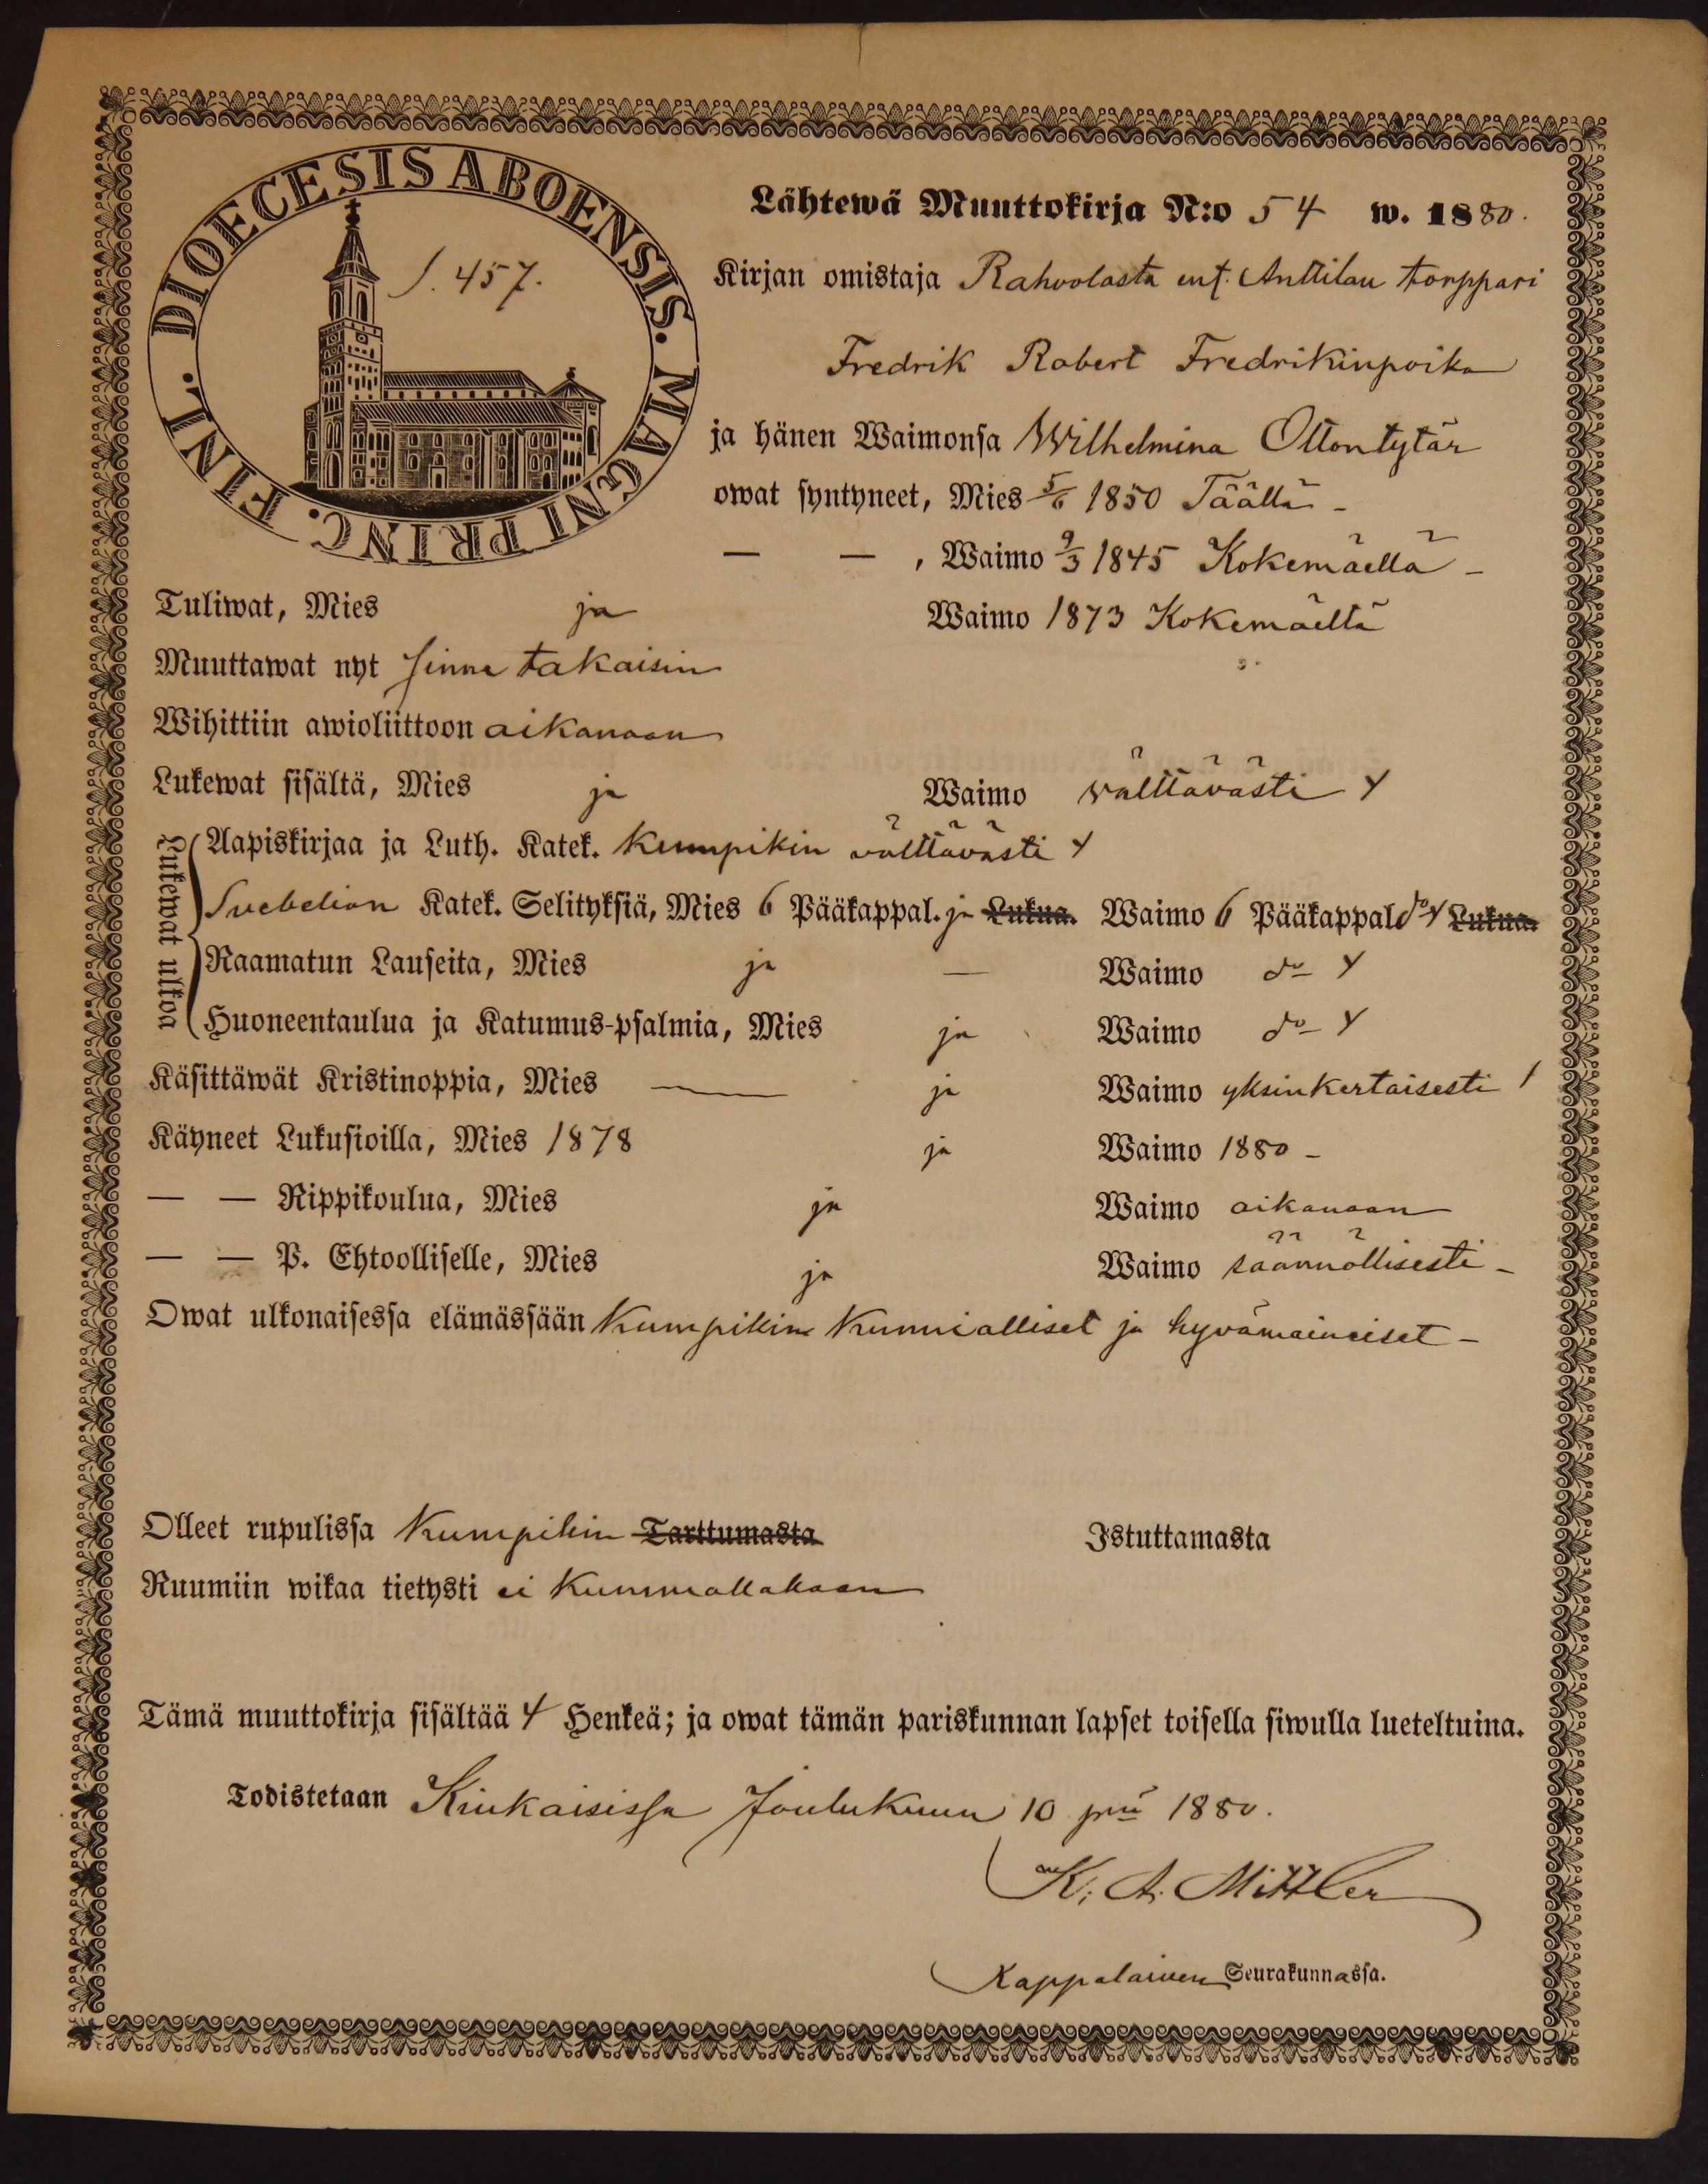 DIOECESIS ABOENSIS. MAGNI PRINC. FINL.
S. 457.
Lähtewä Muuttokirja N:o 54 w. 1880.
Kirjan omistaja Rahvolasta ent. Anttilan torppari
Fredrik Robert Fredrikinpoika
ja hänen Waimonsa Wilhelmina Ottontytär
owat syntyneet, Mies 5/6 1850 Täällä –
— — , Waimo 9/3 1845 Kokemäellä –
Tuliwat, Mies ja Waimo 1873 Kokemäeltä
Muuttawat nyt sinne takaisin
Wihittiin awioliittoon aikanaan
Lukewat sisältä, Mies ja Waimo välttävästi Y
Lukewat ulkoa
Aapiskirjaa ja Luth. Katek. kumpikin välttävästi Y
Svebelion Katek. Selityksiä, Mies 6 Pääkappal. ja Lukua. Waimo 6 Pääkappal do Y Lukua.
Raamatun Lauseita, Mies ja — Waimo do Y
Huoneentaulua ja Katumus-psalmia, Mies ja Waimo do Y
Käsittäwät Kristinoppia, Mies — ja Waimo yksinkertaisesti /
Käyneet Lukusioilla, Mies 1878 ja Waimo 1880 –
— — Rippikoulua, Mies ja Waimo aikanaan
— — P. Ehtoolliselle, Mies ja Waimo säännöllisesti –
Owat ulkonaisessa elämässään kumpikin kunnialliset ja hyvämaineiset –
Olleet rupulissa kumpikin Tarttumasta Istuttamasta
Ruumiin wikaa tietysti ei kummallakaan
Tämä muuttokirja sisältää 4 Henkeä; ja owat tämän pariskunnan lapset toisella siwulla lueteltuina.
Todistetaan Kiukaisissa Joulukuun 10 pnä 1880.
K. A. Mittler
Kappalainen Seurakunnassa.